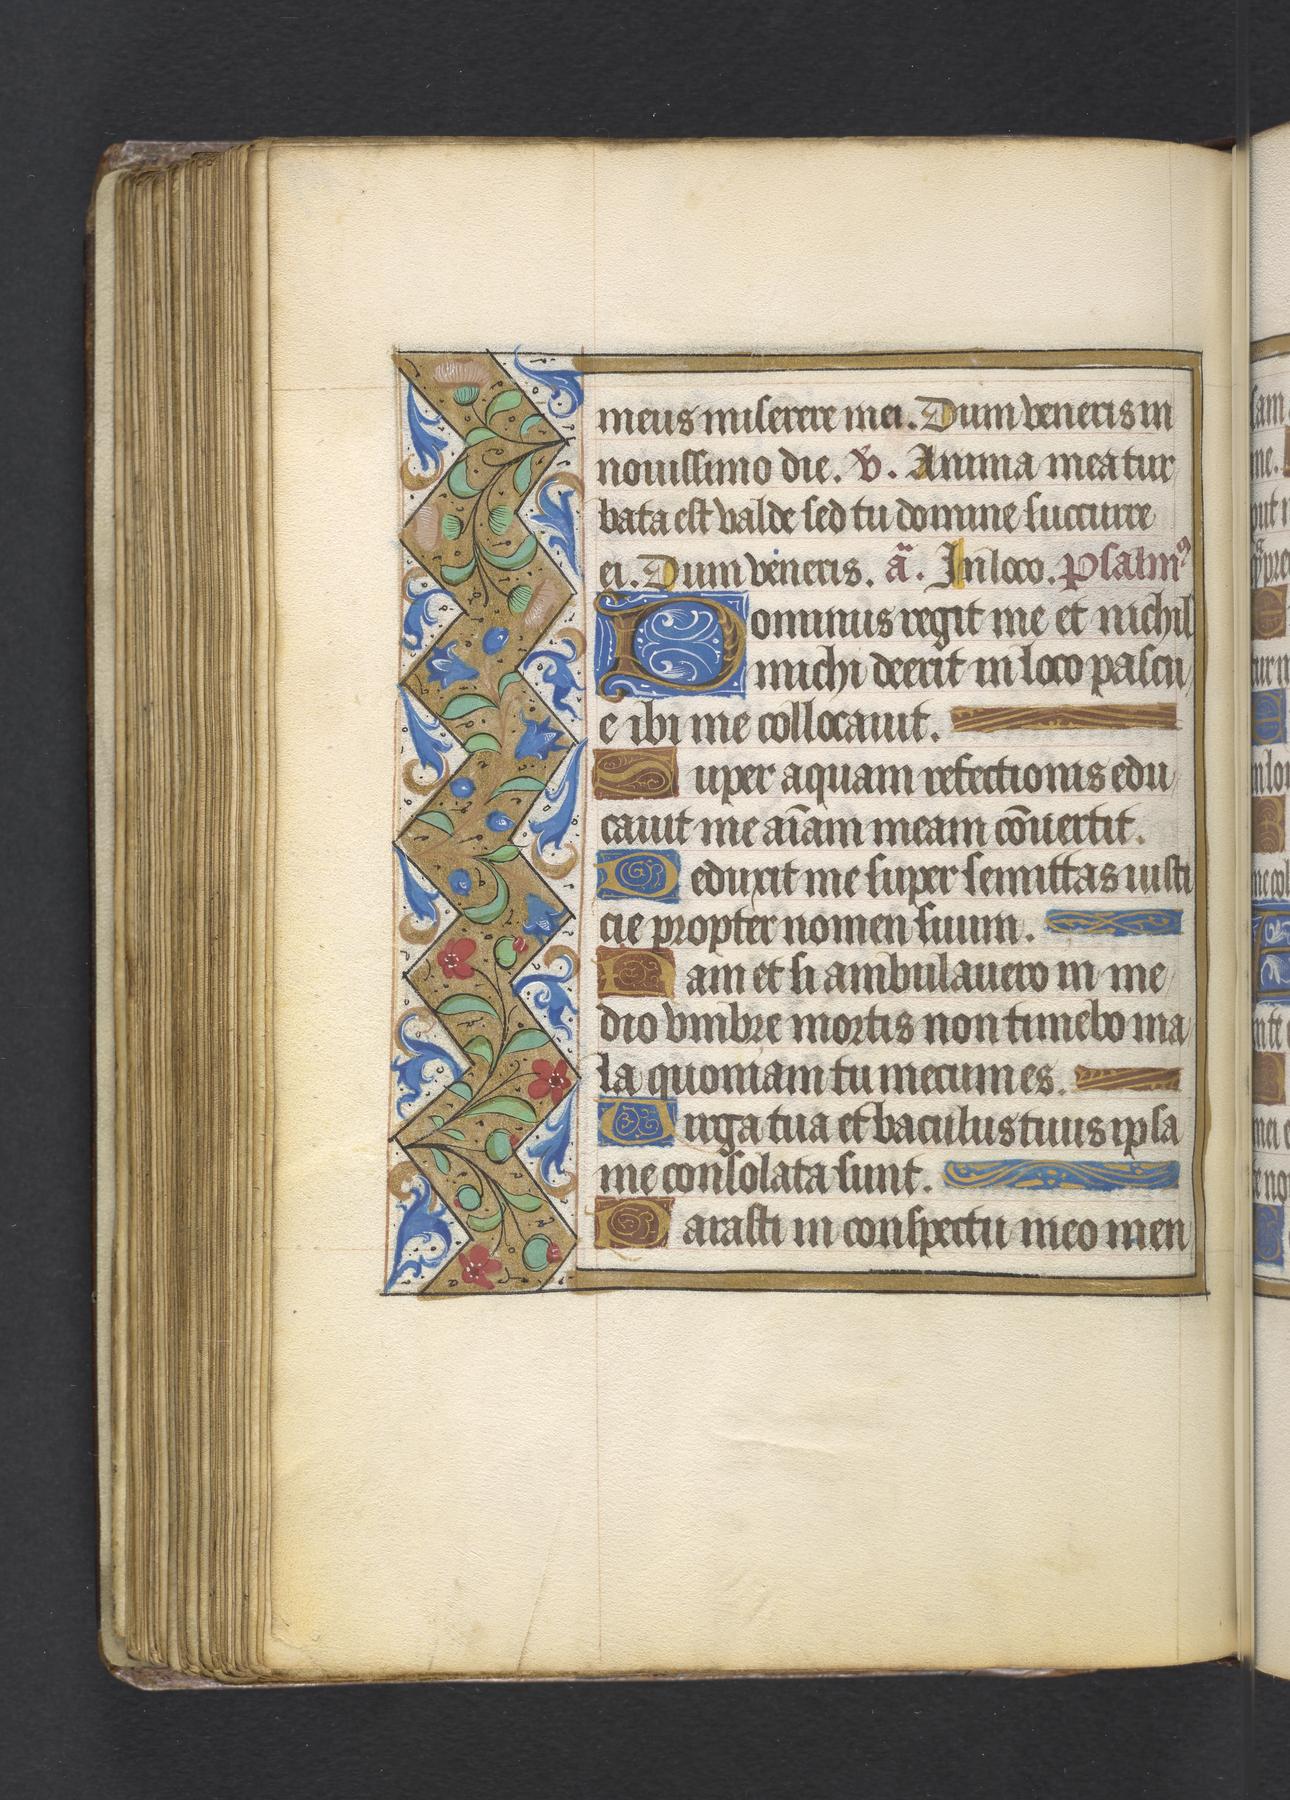 meus miserere mei. Dum veneris in
nouissimo die. v. Anima mea tur
bata est valde sed tu domine succurre
ei. Dum veneris. a. In loco. psalmꝰ
Dominus regit me et nichil
michi deerit in loco pascu
e ibi me collocauit.
Super aquam refectionis edu
cauit me aīam meam cōuertit.
Deduxit me super semittas iusti
cie propter nomen suum.
Nam et si ambulauero in me
dio vmbre mortis non timebo ma
la quoniam tu mecum es.
Uirga tua et baculus tuus ipsa
me consolata sunt.
Parasti in conspectu meo men